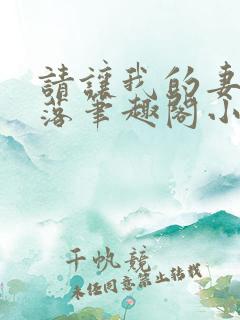 請讓我的妻
落筆趣閣小
千帆競
未经同意禁止转载